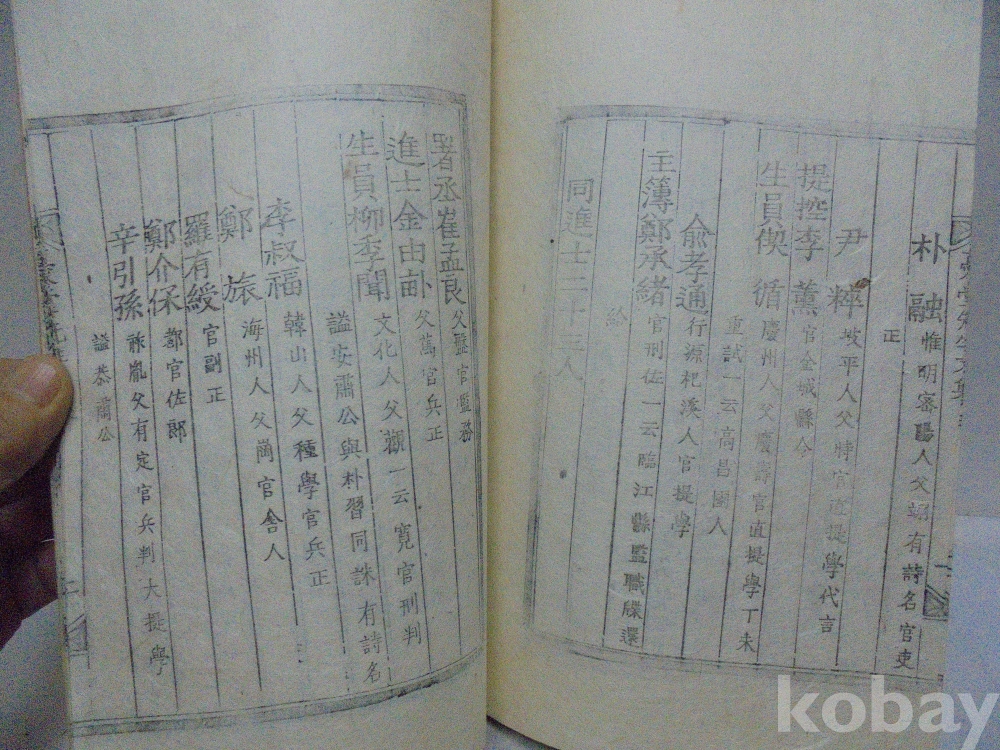 朴融 惟明審陽人父翊有詩名官吏
正
尹粹 坡平人父特官直提學代言
提控李薰 官金城縣令
生員偰循 慶州人父慶壽官直提學丁未
重試一云高昌國人
俞孝通 行源杞溪人官提學
主簿鄭承緖 官刑佐一云臨江縣監職牒還
給
同進士二十三人
署丞崔孟良 父 官監務
進士金由 父萬官兵正
生員柳季聞 文化人父 一云寬官刑判
謚安肅公與朴習同誅有詩名
李叔福 韓山人父種學官兵正
鄭旅 海州人父 官舍人
羅有綬 官副正
鄭介保 都官佐郞
辛引孫 祚胤父有定官兵判大提學
謚恭肅公
kobay